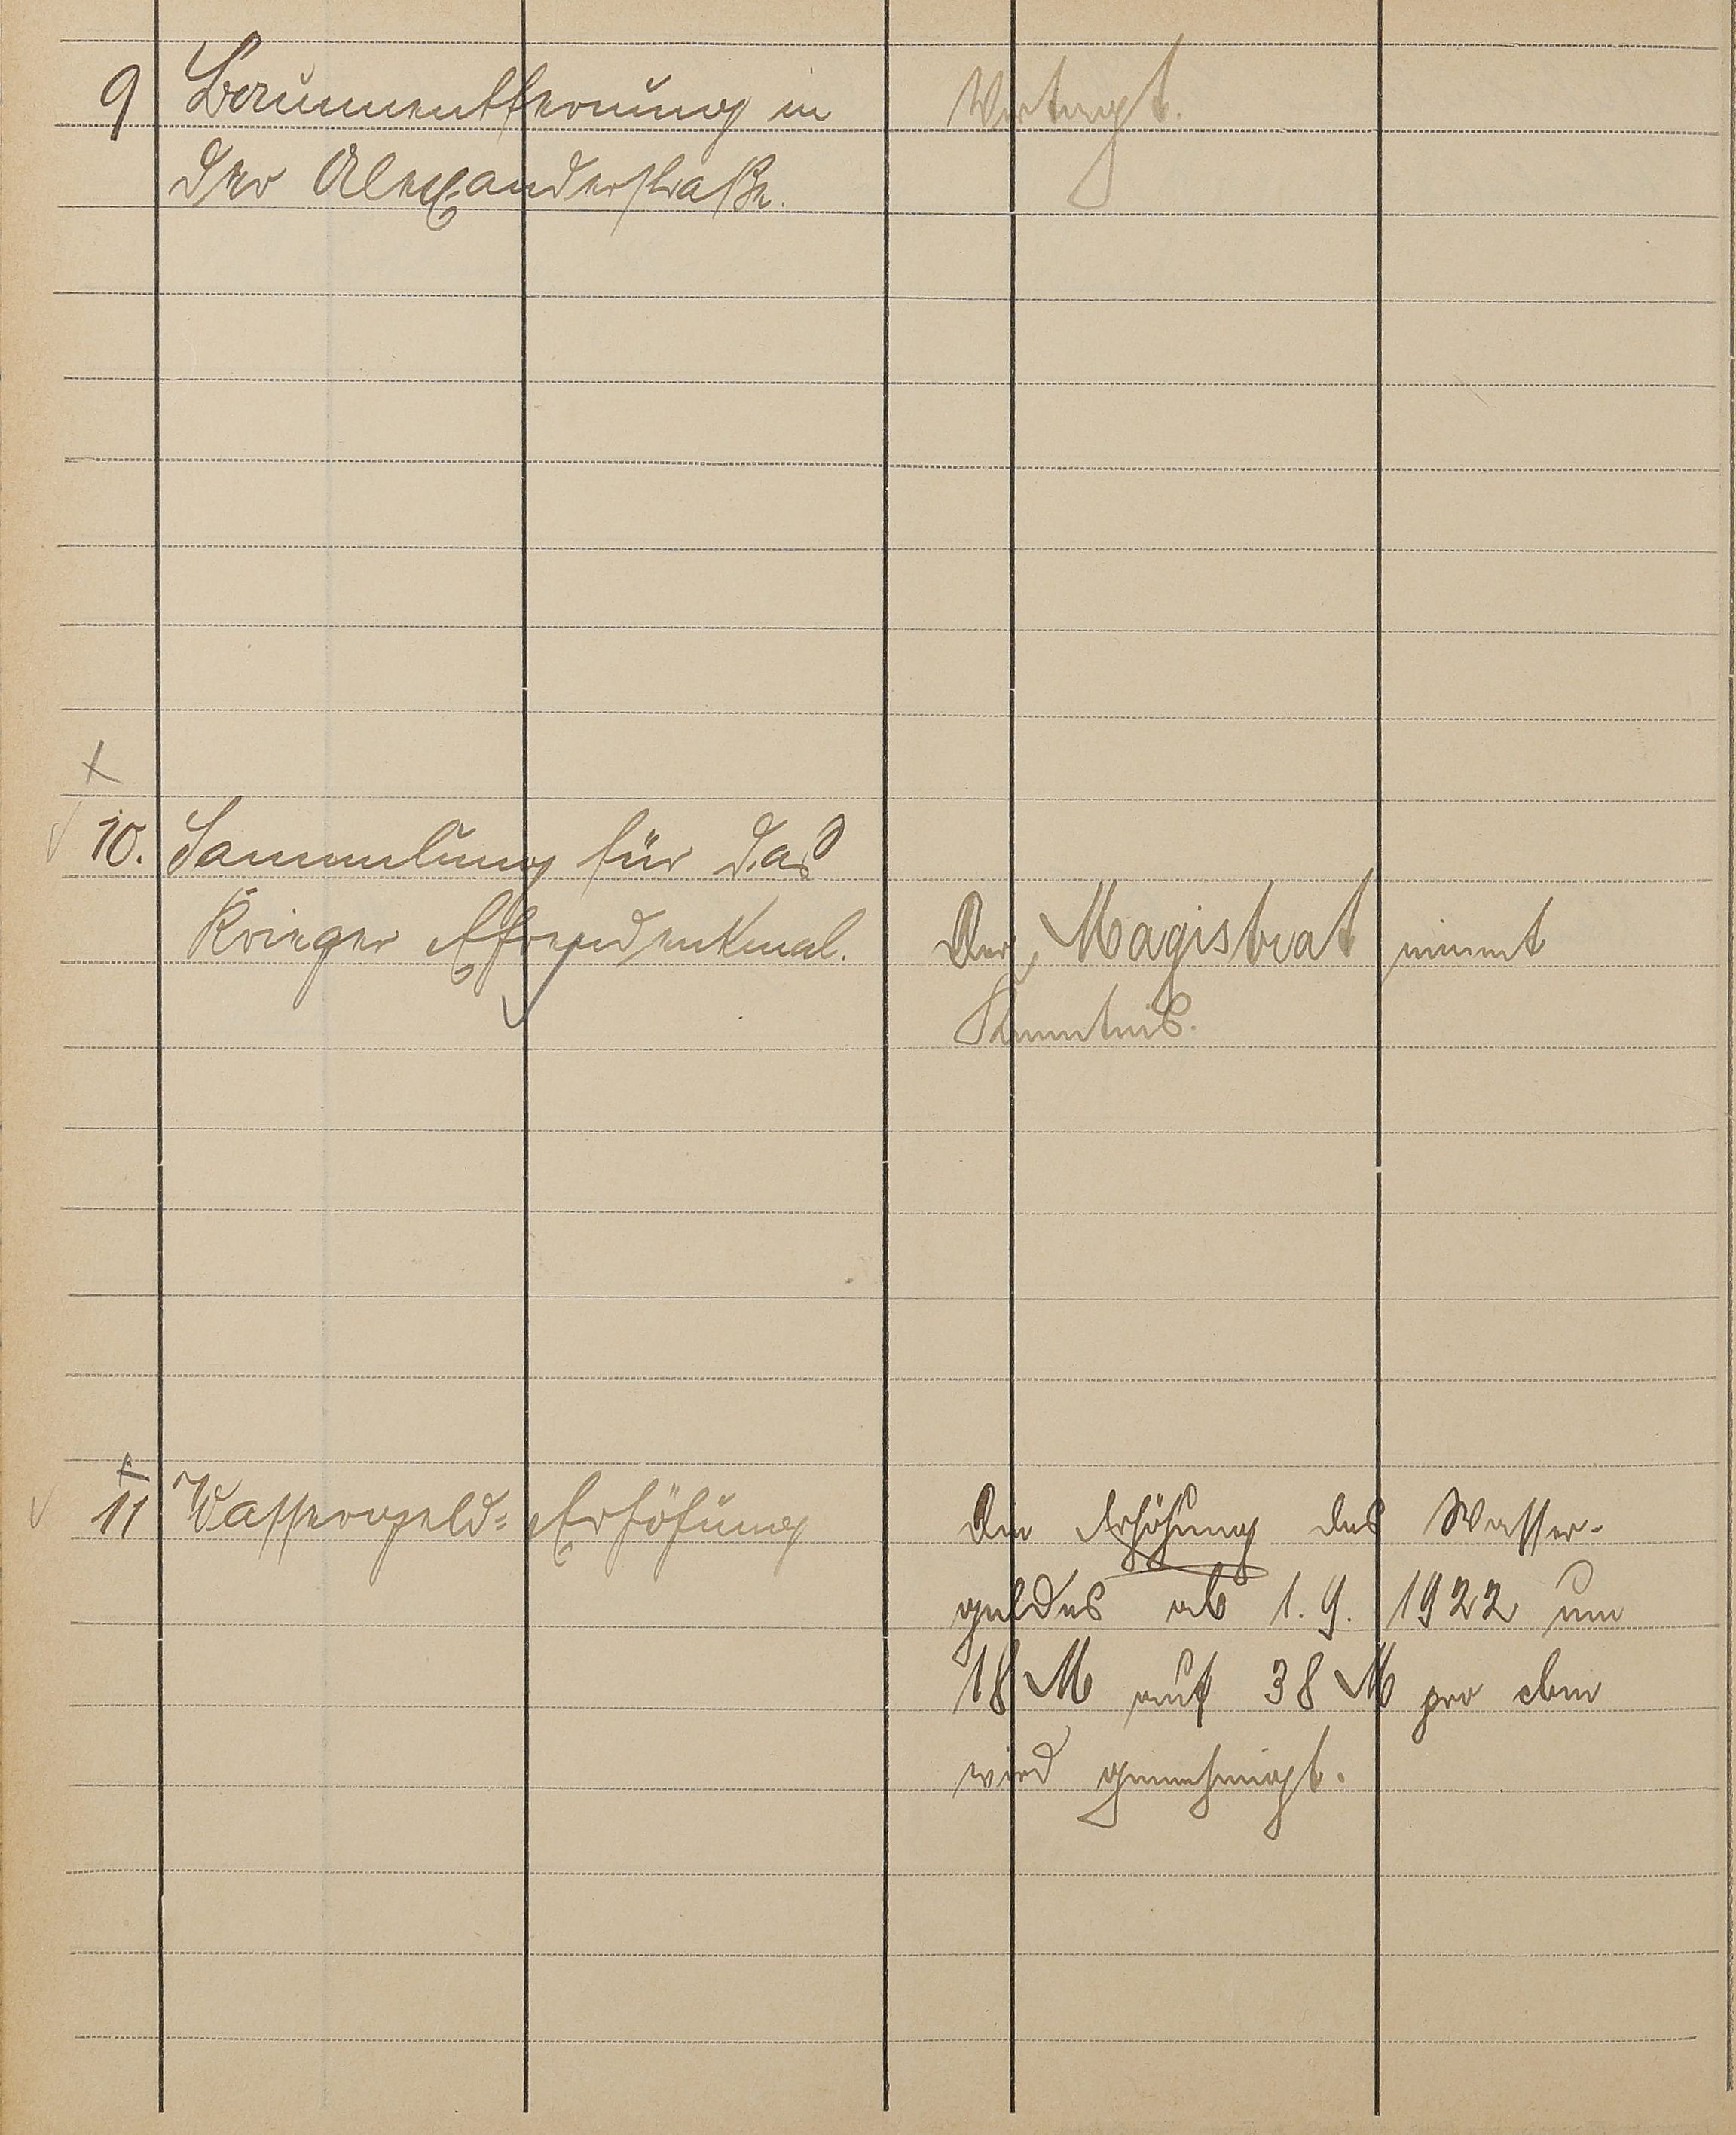 9 Baumentfernung in
der Alexanderstraße.
Vertagt.
10. Sammlung für das
Krieger Ehrendenkmal.
Der Magistrat nimmt
Kenntnis.
11 Wassergeld-Erhöhung
Die Erhöhung des Wasser-
geldes ab 1. 9. 1922 um
18 M auf 38 M pro cbm
wird genehmigt.